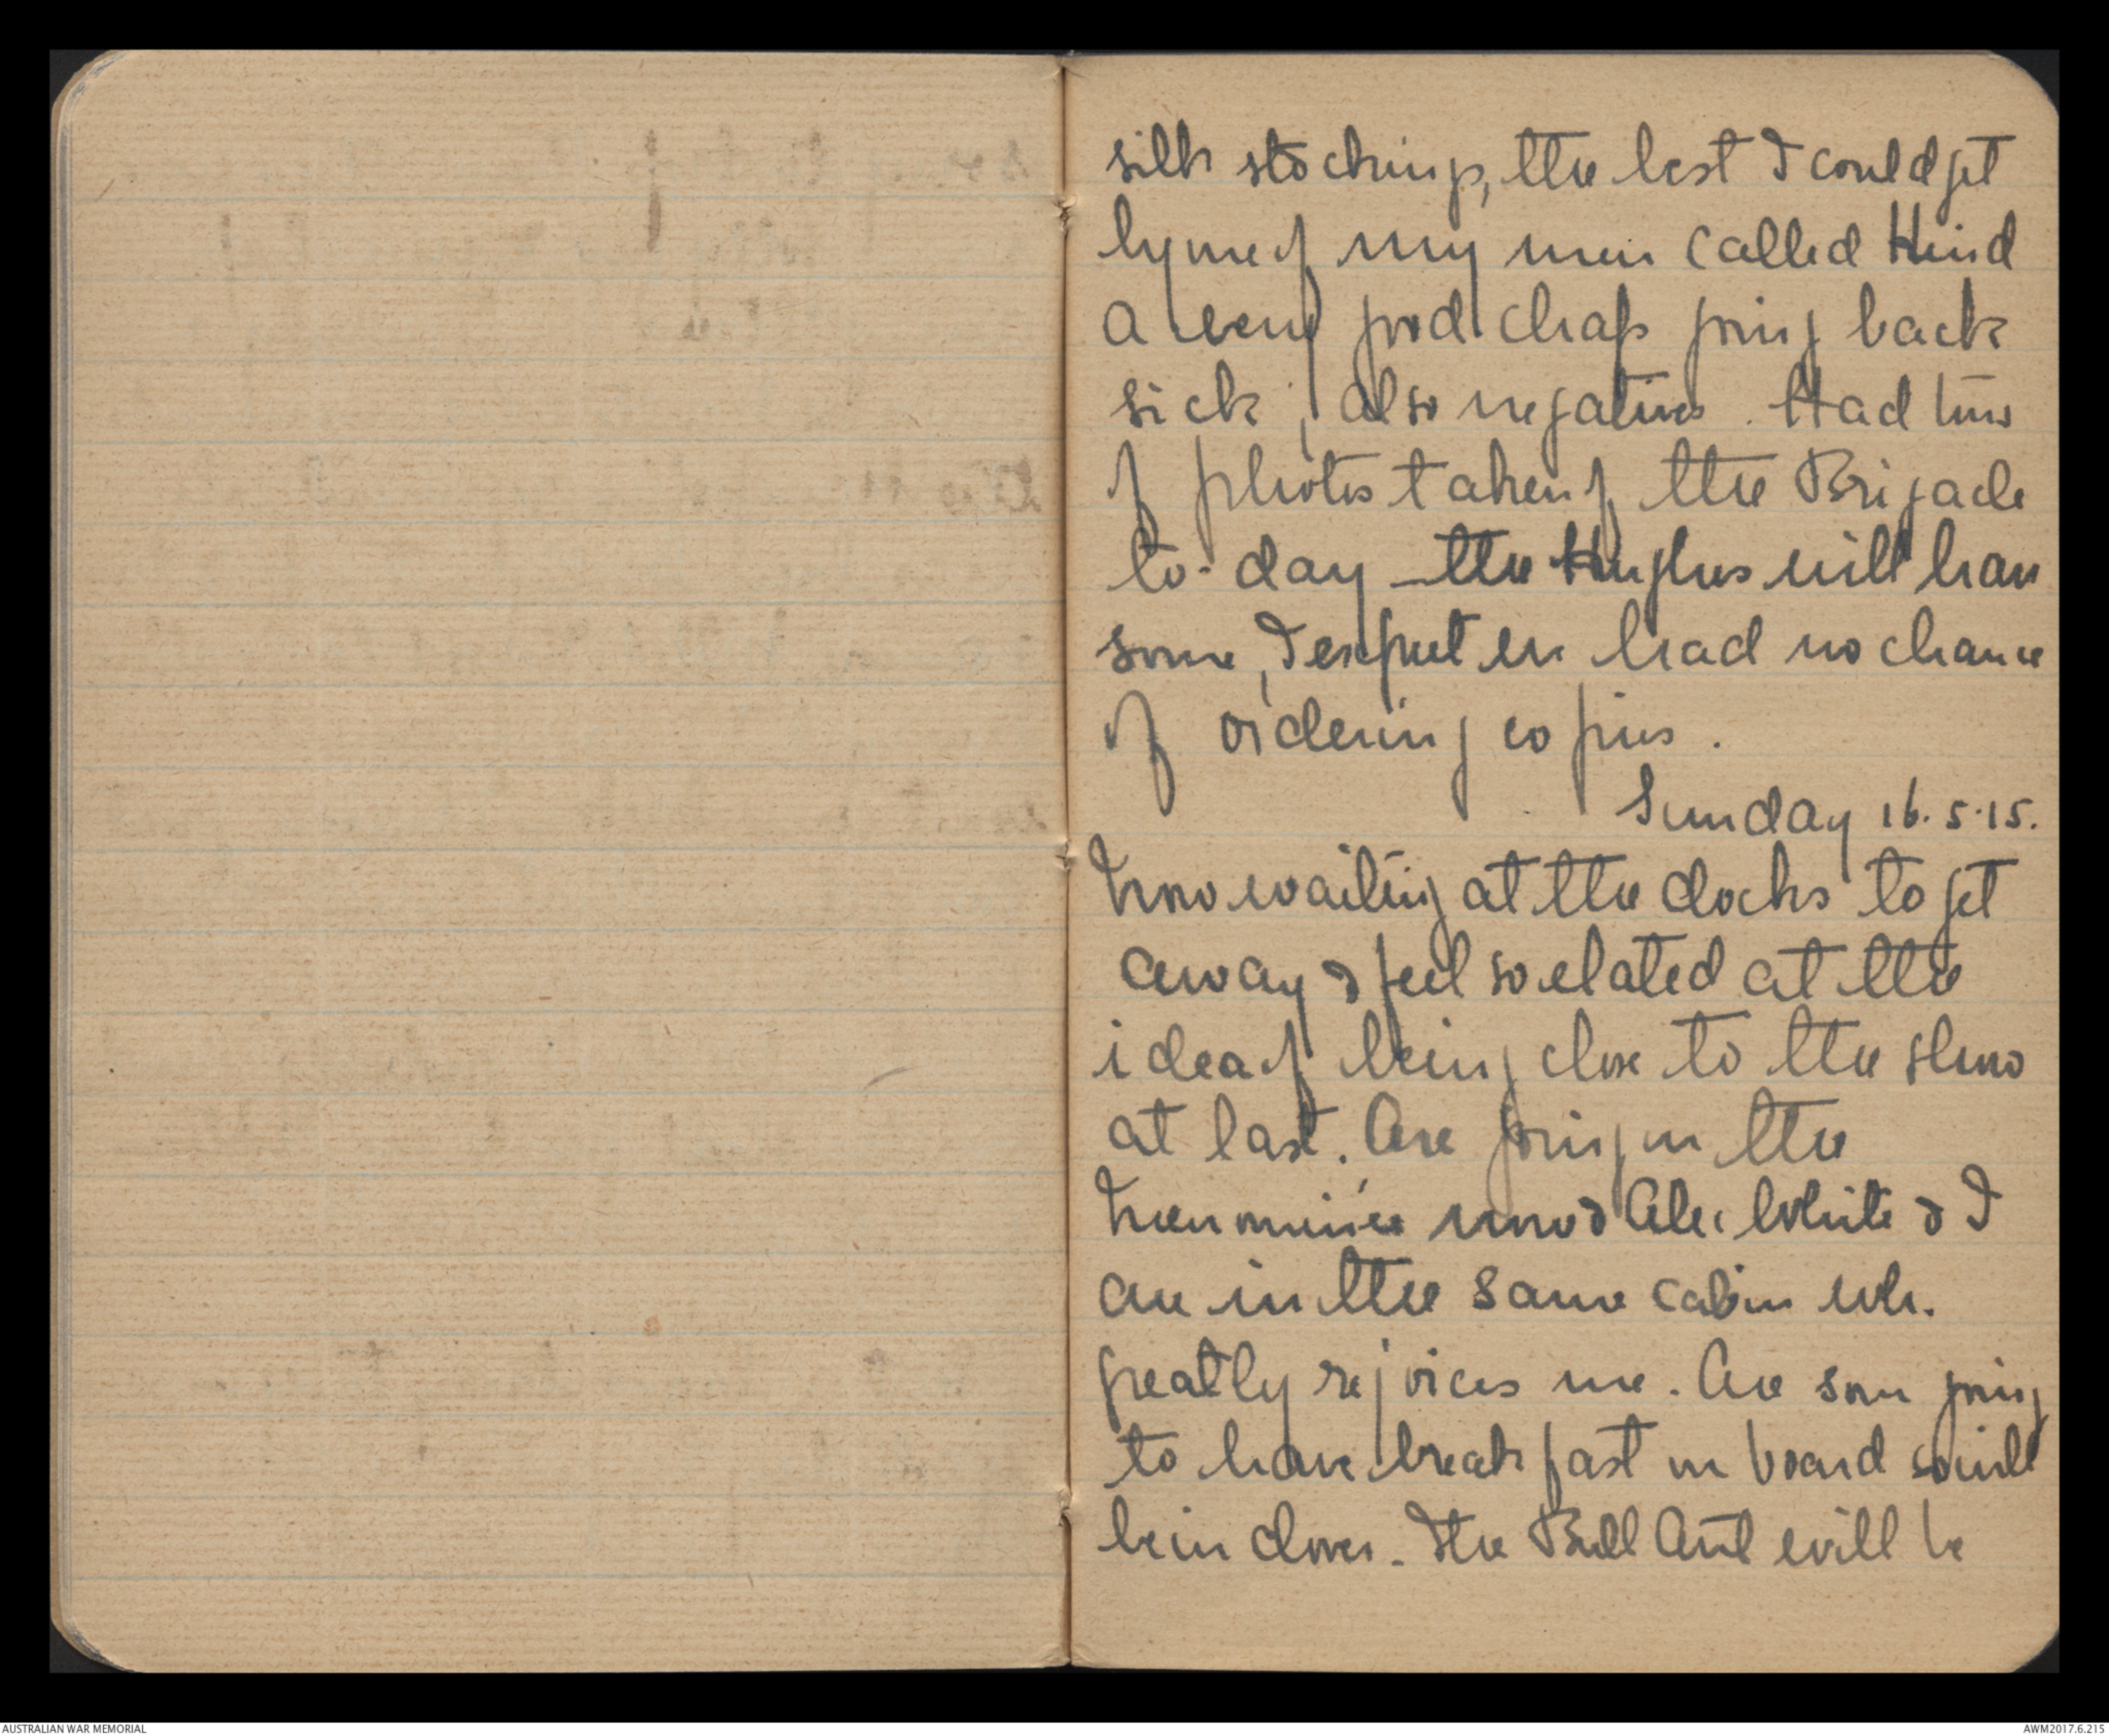 silk stockings, the best I could get
by one of my men called Hind
a very good chap going back
sick, also negatives. Had
of photos taken of the Brigade
to-day - the Hughes will have
some, I expect we had no chance
of ordering copies.
Sunday 16.5.15.
Now waiting at the docks to get
away & feel so elated at the
idea of being close to the show
at last. Are going on the
& Alec White & I
are in the same cabin wh.
greatly rejoices me. Are soon going
to have breakfast on board so will
be in clover. The Bull Ant will be
AUSTRALIAN WAR MEMORIAL
AWM2017.6.215